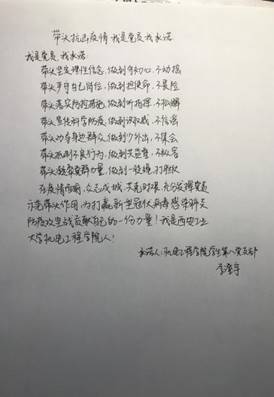 带头抗击疫情 我是党员我承诺
我是党员,我承诺:
带头坚定理性信念,做到守初心,不动摇
带头严守自己岗位,做到担使命,不畏险
带头落实防控措施,做到听指挥,不松懈
带头宣传科学防疫,做到识权威,不信谣
带头劝导身边群众,做到少外出,不集会
带头抵制不良行为,做到发益声,不
带头凝聚党群力量,做到一线建,打胜仗
在疫情面前,众志成城,共克时艰,充分发挥党员
示范带头作用,为打赢新型冠状病毒感染肺炎
防疫攻坚战贡献自己的一份力量!我是西安工业
大学机电工程学院人!
承诺人:机电工程学院学生第八党支部
李